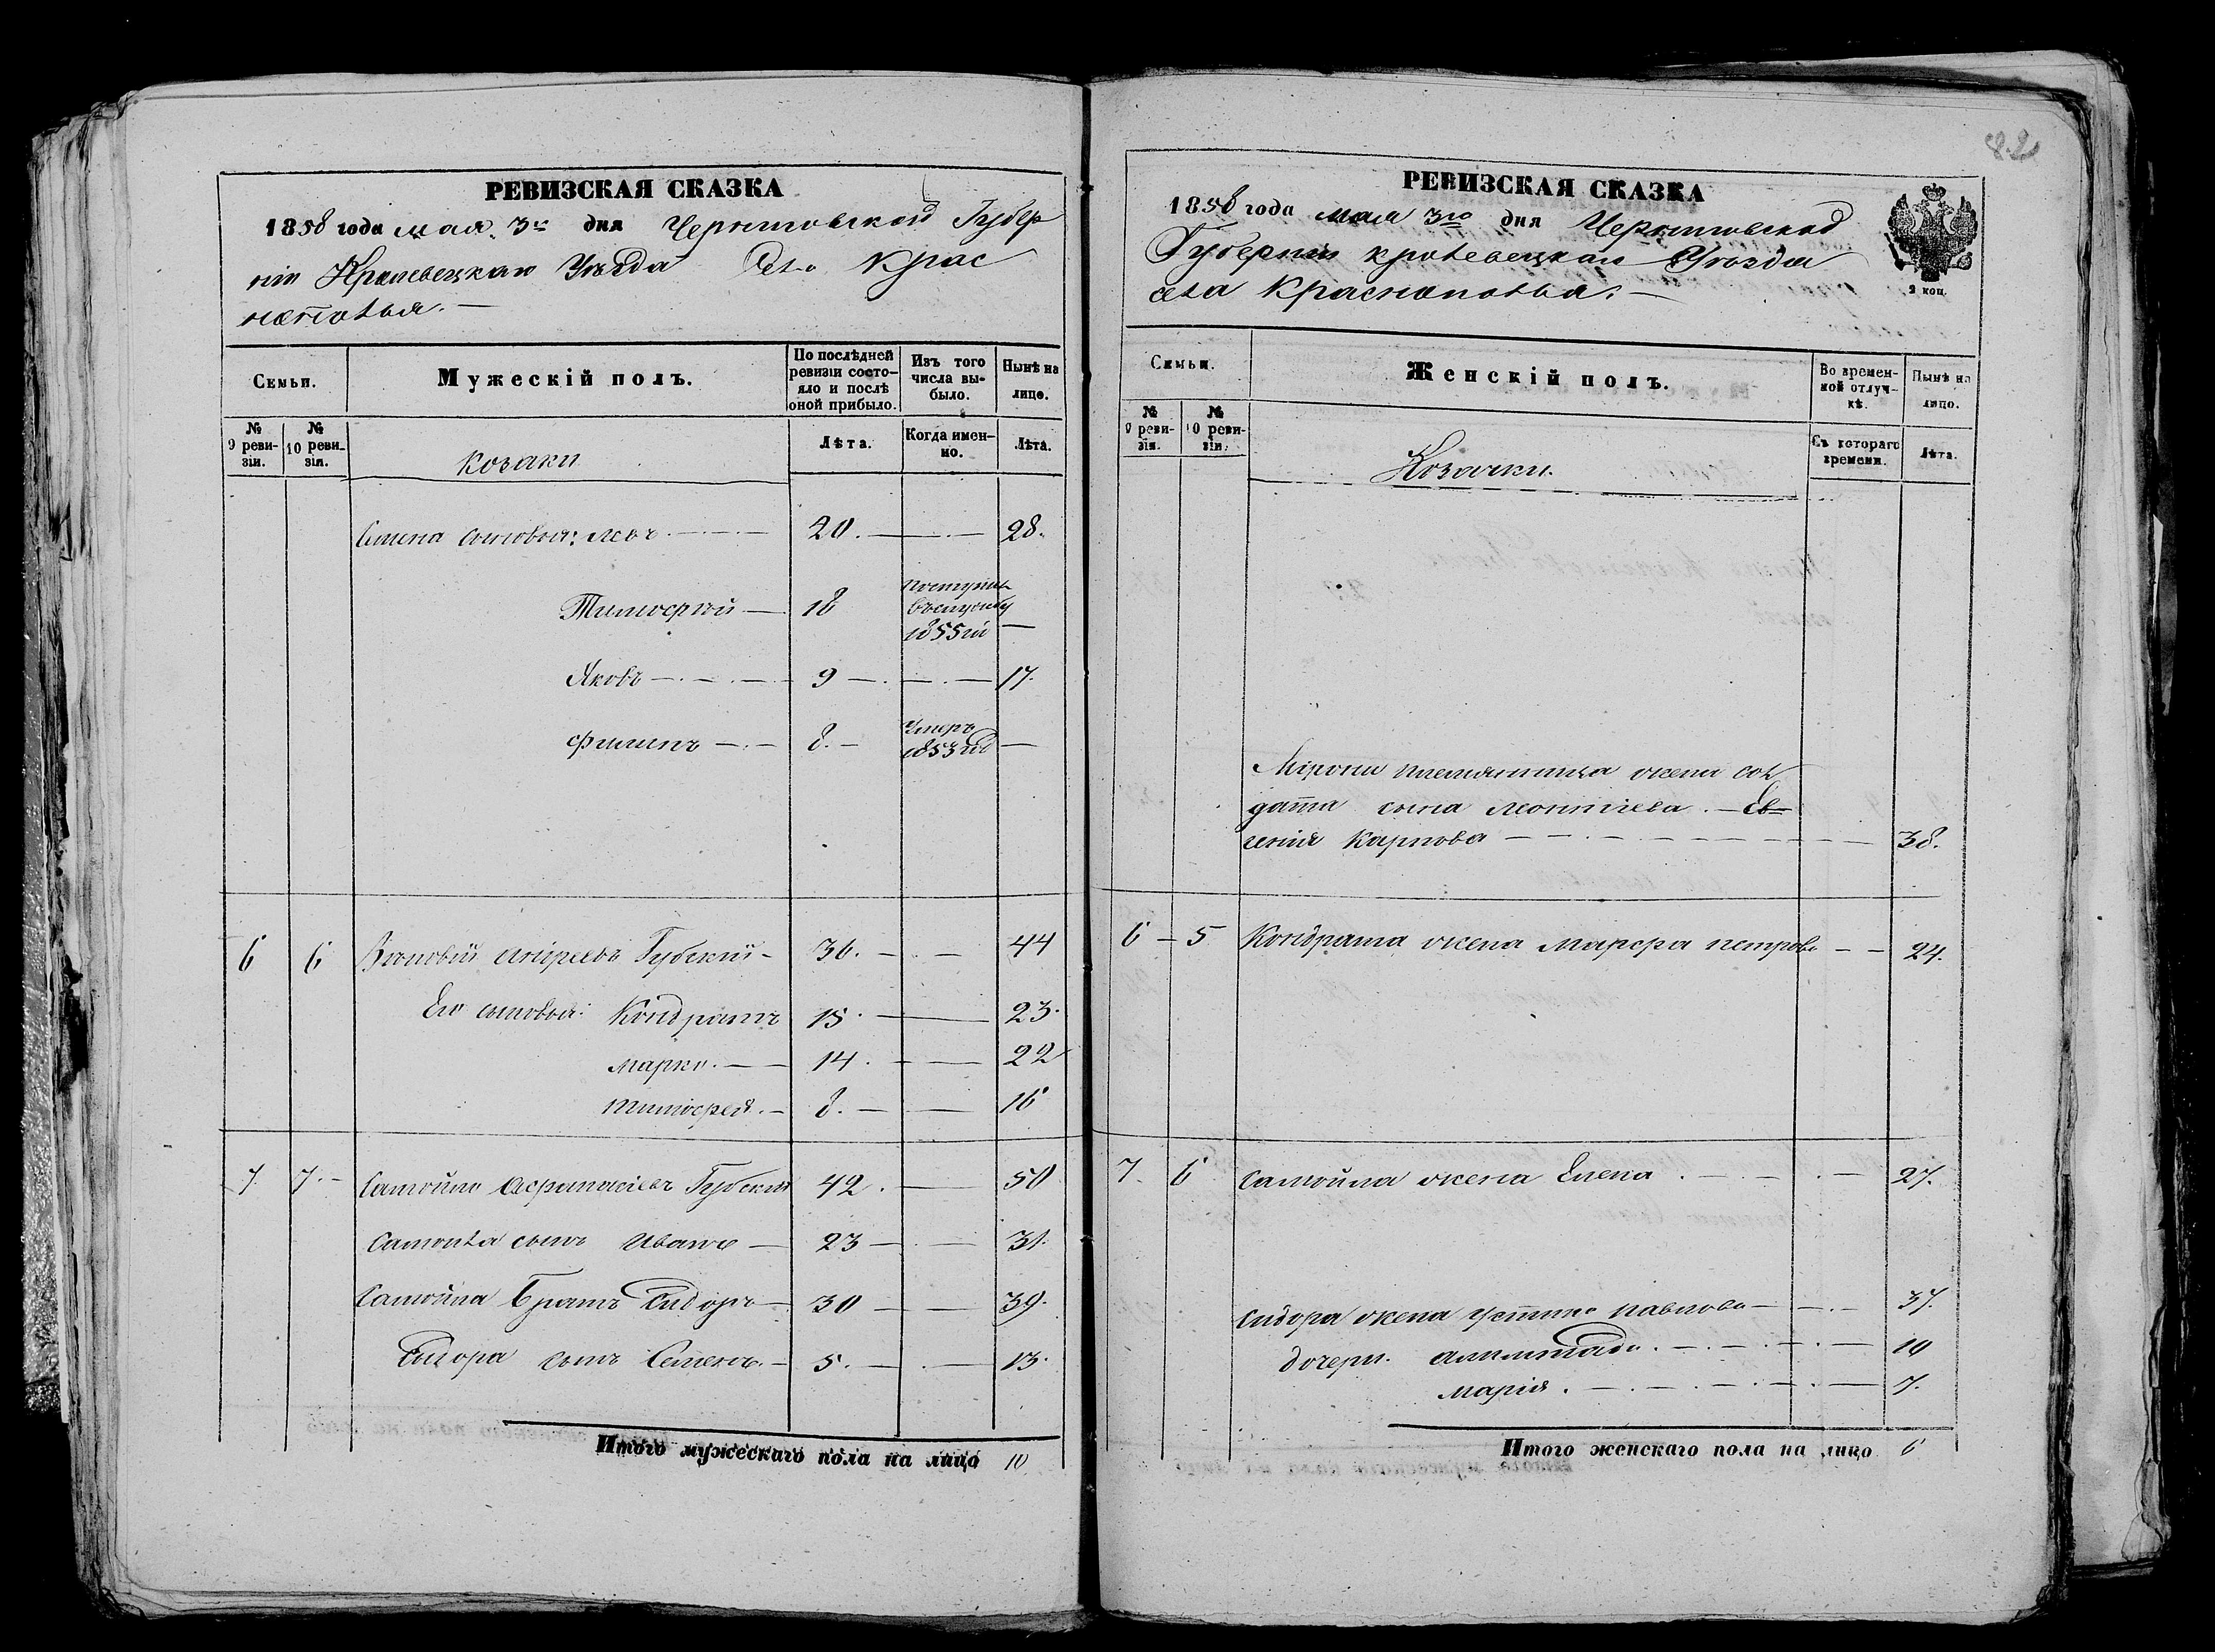 РЕВИЗСКАЯ СКАЗКА
1858 года мая 3го дня Черниговской Губер
ніи Кролевецкаго Уѣзда Села Крас
нополья. —
Семьи.
Мужескій полъ.
По послѣдней ревизіи состо-яло и послѣ оной прибыло.
Изъ того числа вы-было.
Нынѣ на лицо.
№ 9 реви-зіи.
№ 10 реви-зіи.
Козаки
Лѣта.
Когда имен-но.
Лѣта.
Семена сыновья: Левъ 20. 28.
Тимофтей 18 Поступил въ службу 1855 го —
Яковъ 9 17.
Филипъ 8. Умеръ 1853 год —
6 6 Зѣновій Андреевъ Губскій 36. 44
Его сыновья: Кондратъ 15. 23.
Марко. 14. 22
Тимофей. 8. 16
7. 7. Самойло Афанасіевъ Губский 42. 50
Самойла сынъ Иванъ 23 31.
Самойла Братъ Сидоръ 30 39.
Сидора сынъ Семенъ. 5. 13.
Итого мужескаго пола на лицо 10.
82
РЕВИЗСКАЯ СКАЗКА
1858 года мая 3го дня Черниговской
Губерніи Кролевецкаго Уѣзда
села Краснополья. —
2 коп.
Семьи.
Женскій полъ.
Во времен-ной отлуч-кѣ.
Нынѣ на лицо.
№ 9 реви-зіи.
№ 10 реви-зіи.
Козачки.
Съ котораго времени.
Лѣта.
Мірона племянница жена сол
дата сына Леонтіева. — Ев=
генія Карпова 38.
6 5 Кондрата жена Марфа Петрова 24.
7. 6 Самойла жена Елена 27.
Сидора жена Устина Павлова 37.
дочери.
10
Марія. 7.
Итого женскаго пола на лицо 6